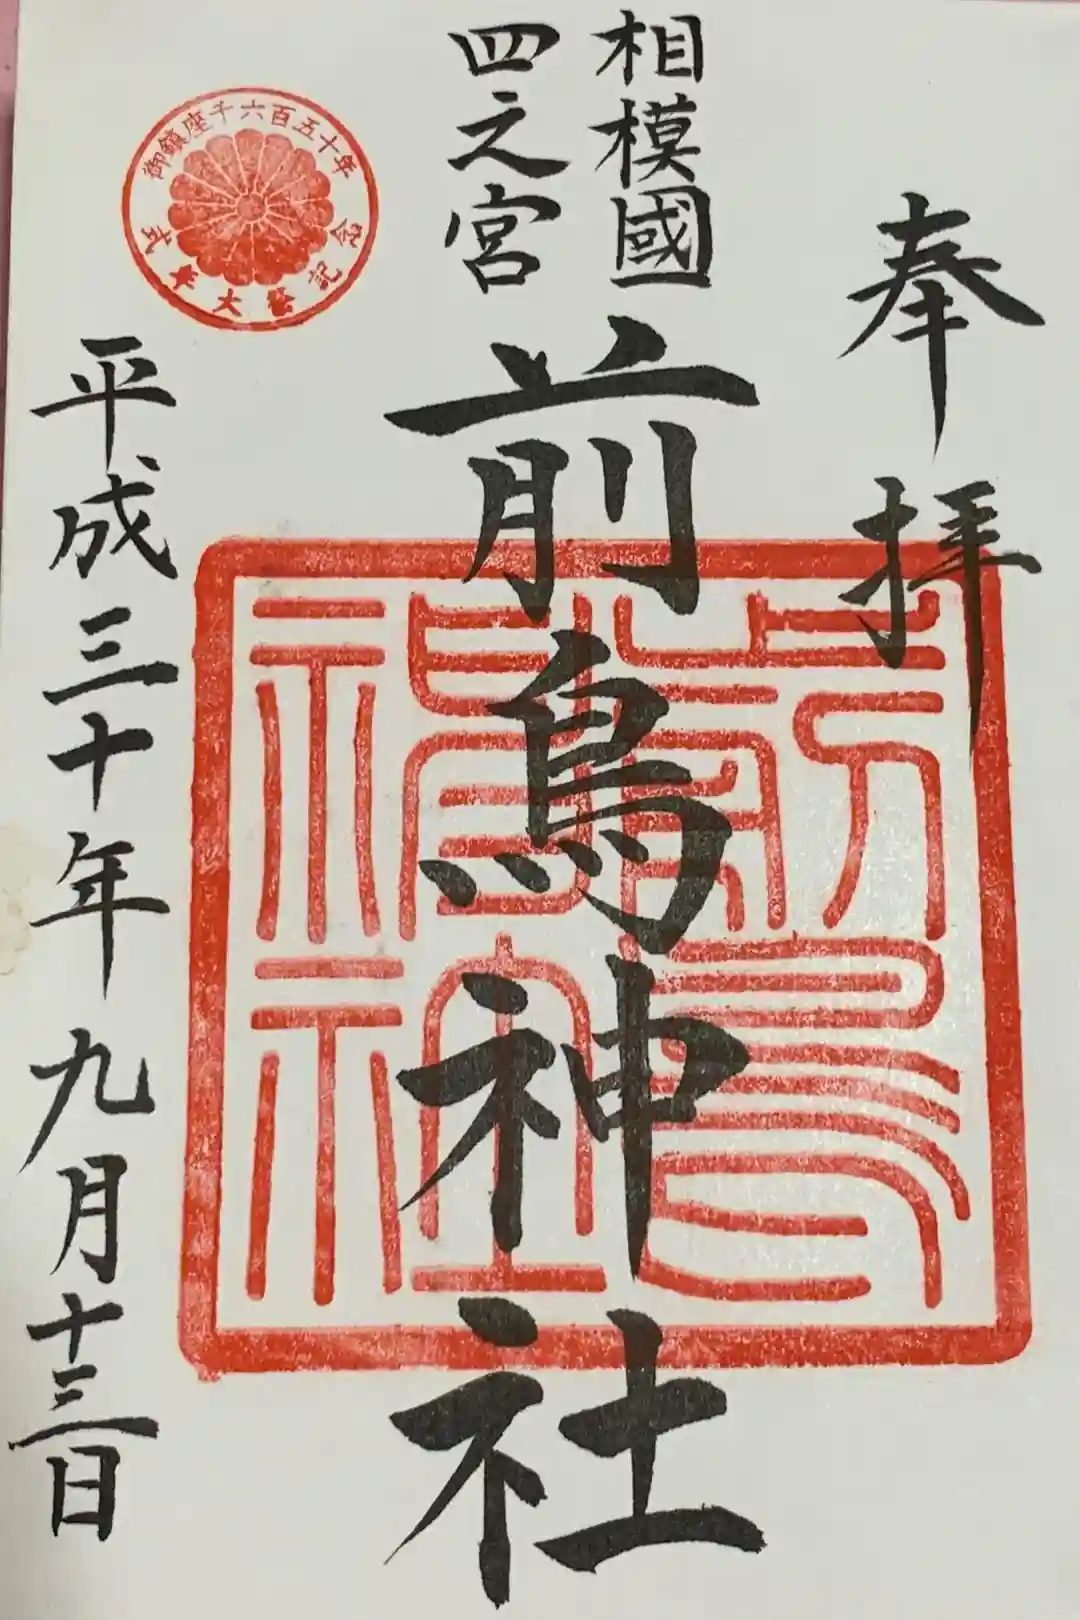 奉拝
相模國
四之宮
前鳥神社
御鎮座千六百五十年
式年大祭記念
平成三十年九月十三日
前鳥神社